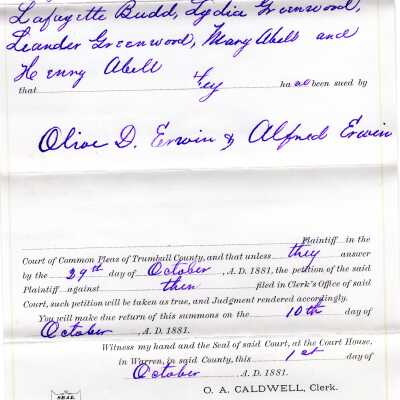 Lafayette Budd, Lydia Greenwood,
Leander Greenwood, Mary Abell and
Henry Abell
that they ha ve been sued by
Olive D. Erwin & Alfred Erwin
Plaintiff in the
Court of Common Pleas of Trumbull County, and that unless they answer
by the 29th day of October, A. D. 1881, the petition of the said
Plaintiff against them filed in Clerk's Office of said
Court, such petition will be taken as true, and Judgment rendered accordingly.
You will make due return of this summons on the 10th day of
October, A. D. 1881.
Witness my hand and the Seal of said Court, at the Court House,
in Warren, in said County, this 1st day of
October, A. D. 1881.
O. A. CALDWELL, Clerk.
SEAL